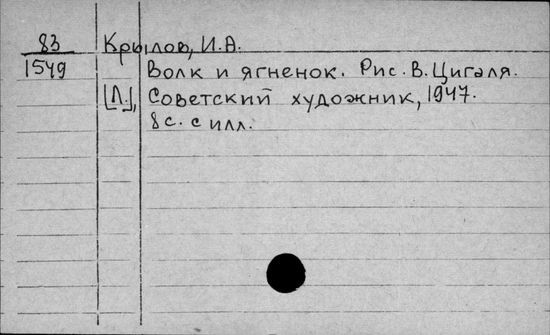 83 Крылов, И.А.
1549 Волк и ягненок. Рис. В. Цигаля.
[Л.], Советский художник, 1947.
8с. с илл.